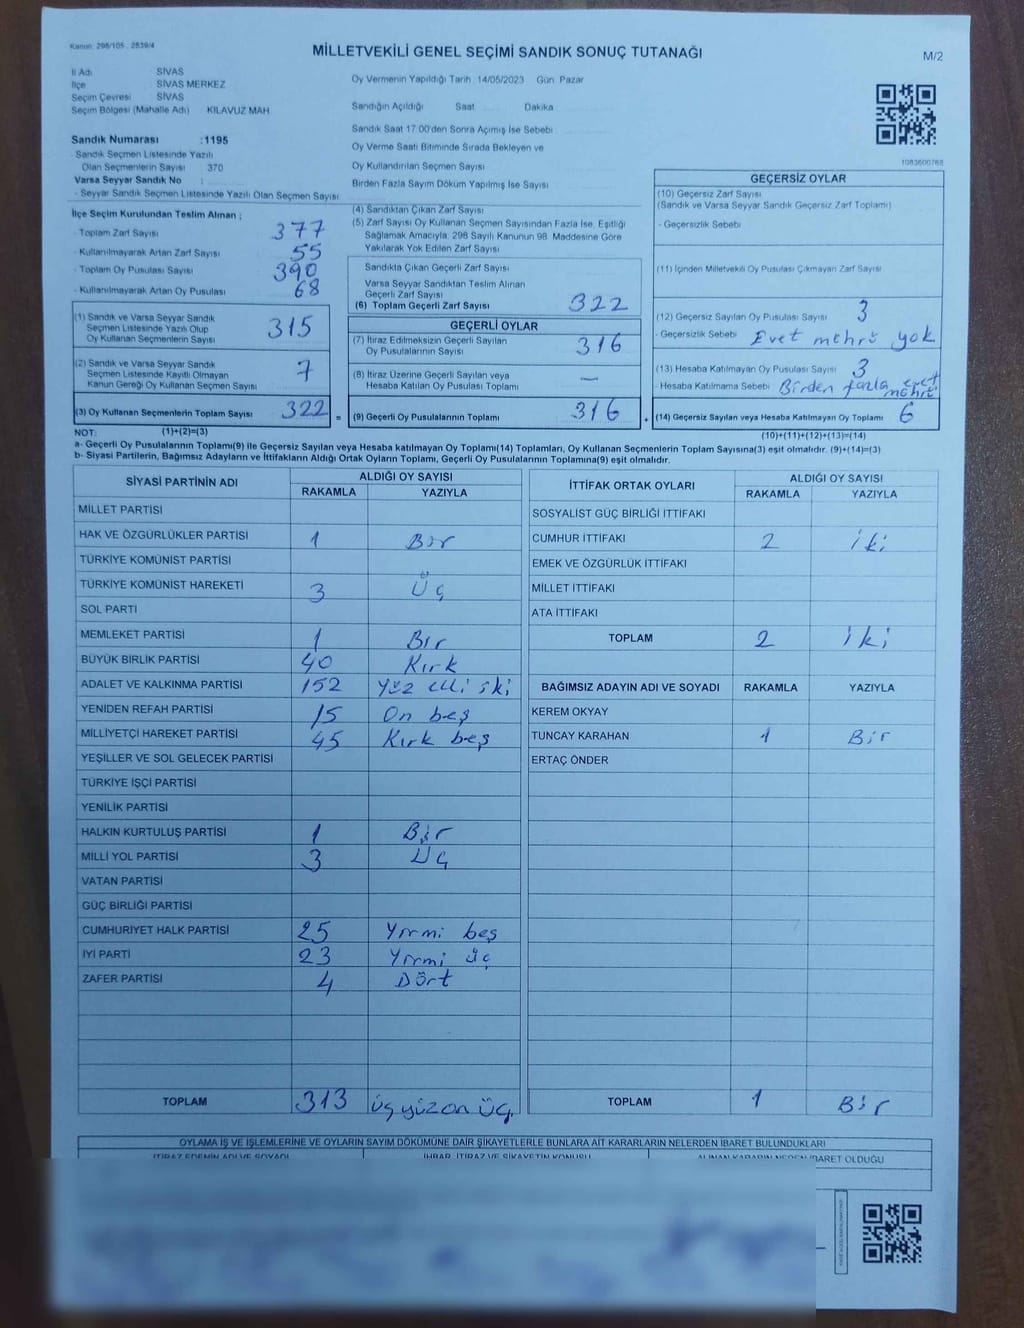 Kanun: 298/105 - 2839/4
MİLLETVEKİLİ GENEL SEÇİMİ SANDIK SONUÇ TUTANAĞI
M/2
İl Adı SİVAS
İlçe SİVAS MERKEZ
Seçim Çevresi SİVAS
Seçim Bölgesi (Mahalle Adı) KILAVUZ MAH
Sandık Numarası :1195
- Sandık Seçmen Listesinde Yazılı
Olan Seçmenlerin Sayısı 370
Varsa Seyyar Sandık No :
- Seyyar Sandık Seçmen Listesinde Yazılı Olan Seçmen Sayısı
Oy Vermenin Yapıldığı Tarih 14/05/2023 Gün Pazar
Sandığın Açıldığı Saat Dakika
Sandık Saat 17:00'den Sonra Açılmış İse Sebebi
Oy Verme Saati Bitiminde Sırada Bekleyen ve
Oy Kullandırılan Seçmen Sayısı
Birden Fazla Sayım Döküm Yapılmış İse Sayısı
1083600768
İlçe Seçim Kurulundan Teslim Alınan ;
- Toplam Zarf Sayısı 377
- Kullanılmayarak Artan Zarf Sayısı 55
- Toplam Oy Pusulası Sayısı 390
- Kullanılmayarak Artan Oy Pusulası 68
(1) Sandık ve Varsa Seyyar Sandık
Seçmen Listesinde Yazılı Olup
Oy Kullanan Seçmenlerin Sayısı 315
(2) Sandık ve Varsa Seyyar Sandık
Seçmen Listesinde Kayıtlı Olmayan
Kanun Gereği Oy Kullanan Seçmen Sayısı 7
(3) Oy Kullanan Seçmenlerin Toplam Sayısı 322 =
(1)+(2)=(3)
(4) Sandıktan Çıkan Zarf Sayısı
(5) Zarf Sayısı Oy Kullanan Seçmen Sayısından Fazla İse, Eşitliği
Sağlamak Amacıyla, 298 Sayılı Kanunun 98. Maddesine Göre
Yakılarak Yok Edilen Zarf Sayısı
Sandıkta Çıkan Geçerli Zarf Sayısı
Varsa Seyyar Sandıktan Teslim Alınan
Geçerli Zarf Sayısı
(6) Toplam Geçerli Zarf Sayısı 322
GEÇERLİ OYLAR
(7) İtiraz Edilmeksizin Geçerli Sayılan
Oy Pusulalarının Sayısı 316
(8) İtiraz Üzerine Geçerli Sayılan veya
Hesaba Katılan Oy Pusulası Toplamı —
(9) Geçerli Oy Pusulalarının Toplamı 316 +
GEÇERSİZ OYLAR
(10) Geçersiz Zarf Sayısı
(Sandık ve Varsa Seyyar Sandık Geçersiz Zarf Toplamı)
- Geçersizlik Sebebi
(11) İçinden Milletvekili Oy Pusulası Çıkmayan Zarf Sayısı
(12) Geçersiz Sayılan Oy Pusulası Sayısı 3
- Geçersizlik Sebebi Evet mehrü yok
(13) Hesaba Katılmayan Oy Pusulası Sayısı 3
- Hesaba Katılmama Sebebi Birden fazla evet
mehrü
(14) Geçersiz Sayılan veya Hesaba Katılmayan Oy Toplamı 6
(10)+(11)+(12)+(13)=(14)
NOT:
a- Geçerli Oy Pusulalarının Toplamı(9) ile Geçersiz Sayılan veya Hesaba katılmayan Oy Toplamı(14) Toplamları, Oy Kullanan Seçmenlerin Toplam Sayısına(3) eşit olmalıdır. (9)+(14)=(3)
b- Siyasi Partilerin, Bağımsız Adayların ve İttifakların Aldığı Ortak Oyların Toplamı, Geçerli Oy Pusulalarının Toplamına(9) eşit olmalıdır.
SİYASİ PARTİNİN ADI ALDIĞI OY SAYISI
RAKAMLA YAZIYLA
MİLLET PARTİSİ
HAK VE ÖZGÜRLÜKLER PARTİSİ 1 Bir
TÜRKİYE KOMÜNİST PARTİSİ
TÜRKİYE KOMÜNİST HAREKETİ 3 Üç
SOL PARTİ
MEMLEKET PARTİSİ 1 Bir
BÜYÜK BİRLİK PARTİSİ 40 Kırk
ADALET VE KALKINMA PARTİSİ 152 Yüz elli iki
YENİDEN REFAH PARTİSİ 15 On beş
MİLLİYETÇİ HAREKET PARTİSİ 45 Kırk beş
YEŞİLLER VE SOL GELECEK PARTİSİ
TÜRKİYE İŞÇİ PARTİSİ
YENİLİK PARTİSİ
HALKIN KURTULUŞ PARTİSİ 1 Bir
MİLLİ YOL PARTİSİ 3 Üç
VATAN PARTİSİ
GÜÇ BİRLİĞİ PARTİSİ
CUMHURİYET HALK PARTİSİ 25 Yirmi beş
İYİ PARTİ 23 Yirmi üç
ZAFER PARTİSİ 4 Dört
TOPLAM 313 üçyüzon üç.
İTTİFAK ORTAK OYLARI ALDIĞI OY SAYISI
RAKAMLA YAZIYLA
SOSYALİST GÜÇ BİRLİĞİ İTTİFAKI
CUMHUR İTTİFAKI 2 iki
EMEK VE ÖZGÜRLÜK İTTİFAKI
MİLLET İTTİFAKI
ATA İTTİFAKI
TOPLAM 2 iki
BAĞIMSIZ ADAYIN ADI VE SOYADI RAKAMLA YAZIYLA
KEREM OKYAY
TUNCAY KARAHAN 1 Bir
ERTAÇ ÖNDER
TOPLAM 1 Bir
OYLAMA İŞ VE İŞLEMLERİNE VE OYLARIN SAYIM DÖKÜMÜNE DAİR ŞİKAYETLERLE BUNLARA AİT KARARLARIN NELERDEN İBARET BULUNDUKLARI
İTİRAZ EDENİN ADI VE SOYADI İHBAR, İTİRAZ VE ŞİKAYETİN KONUSU ALINAN KARARIN NEDEN İBARET OLDUĞU